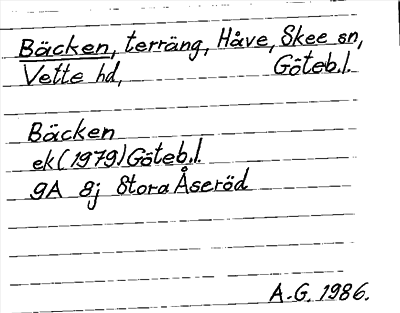 Bäcken, terräng, Håve, Skee sn,
Vette hd, Göteb.l.
Bäcken
ek (1979) Göteb.l.
9A 8j Stora Åseröd
A.G. 1986.